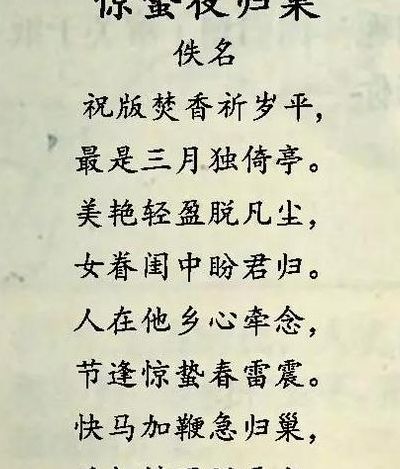 惊蛰夜归巢
佚名
祝版焚香祈岁平，
最是三月独倚亭。
美艳轻盈脱凡尘，
女眷闺中盼君归。
人在他乡心牵念，
节逢惊蛰春雷震。
快马加鞭急归巢，